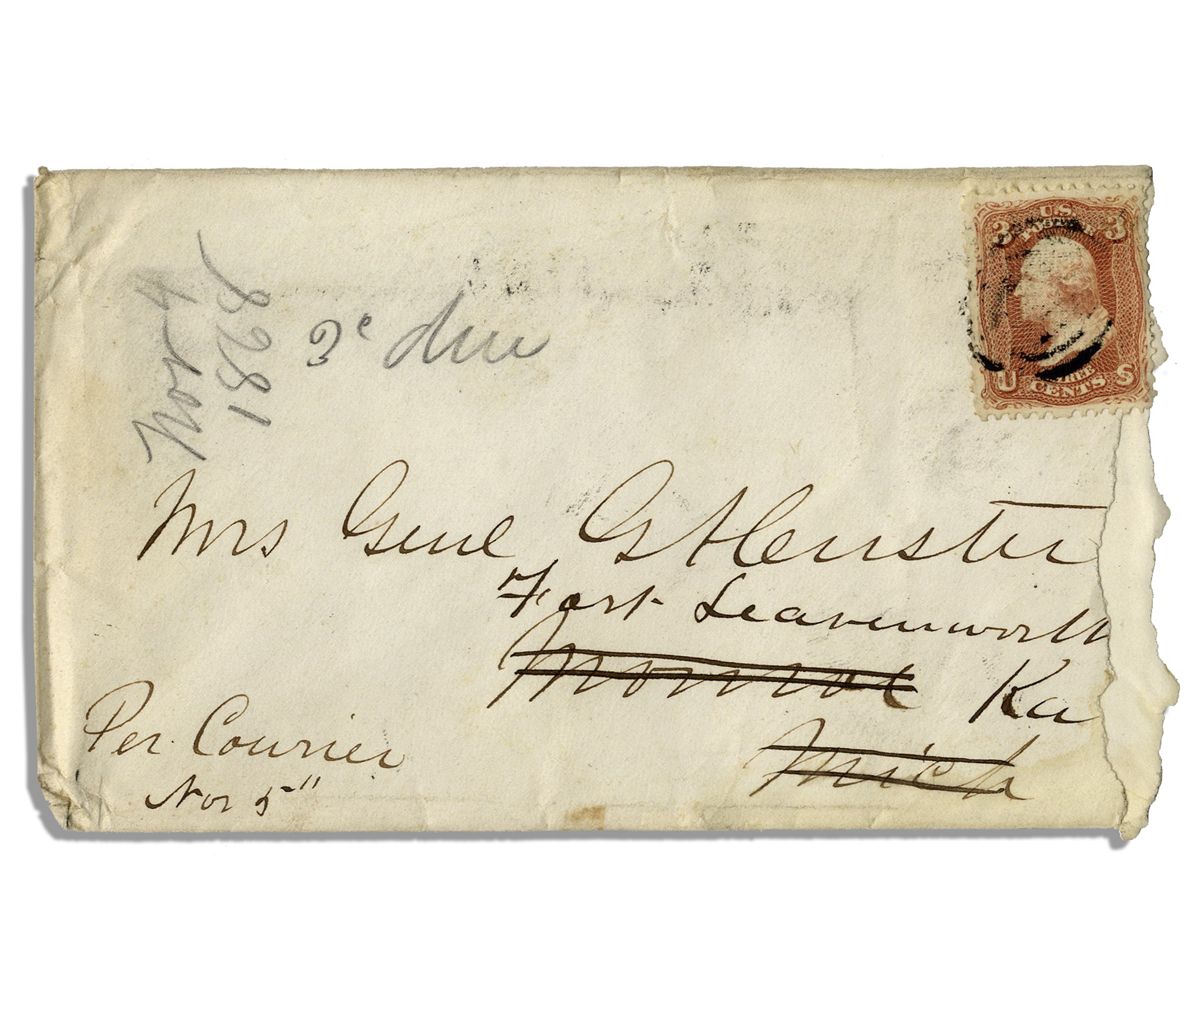 Nov 4
1868
3c due
3 U.S. 3
POSTAGE
U THREE S
CENTS
Mrs Genl G A Custer
Fort Leavenworth
Monroe Ka
Mich
Per Courier
Nov 5"